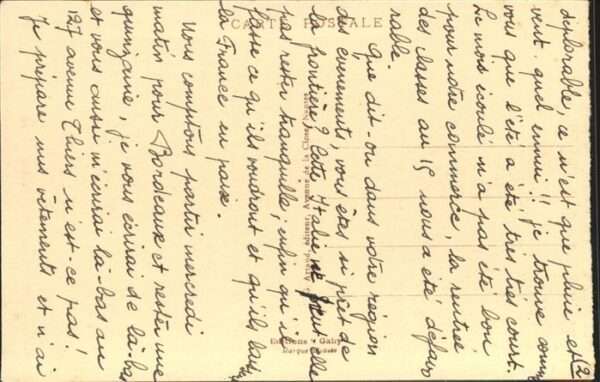 déplorable, ce n'est que pluie et
vent quel ennui !! je trouve comme
vous que l'été a été très très court.
Le mois écoulé n'a pas été bon
pour notre commerce, la rentrée
des classes au 15 nous a été défavo
rable.
Que dit-on dans votre région
des évènements, vous êtes si prêt de
la frontière, cette Italie ne peut-elle
pas rester tranquille, enfin qu'il
fasse ce qu'ils voudront et qu'ils
la France en paix.
Nous comptons partir mercredi
matin pour Bordeaux et rester une
quinzaine, je vous écrirai de là-bas
et vous aussi m'écrirai là-bas au
127 avenue Thiers n'est-ce pas!
Je prépare mes vêtements et n'ai
CARTE POSTALE
Editions "Gaby"
Marque déposée